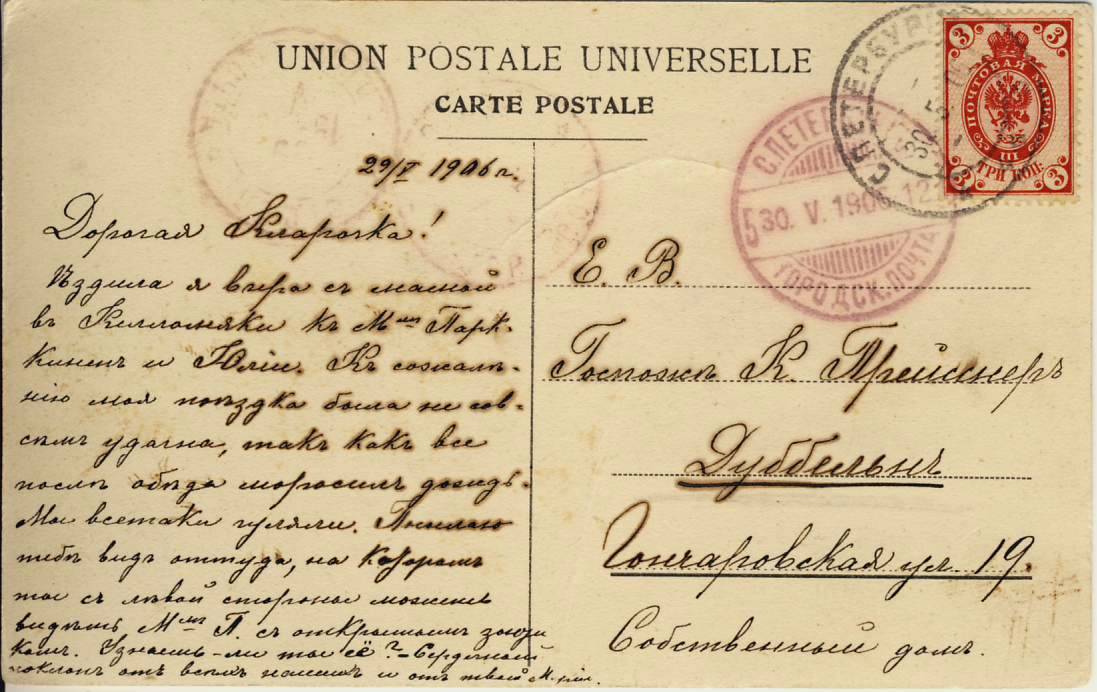 UNION POSTALE UNIVERSELLE
CARTE POSTALE
29/V 1906 г.
Дорогая Кларочка!
Ѣздила я вчера съ мамой
въ Келломяки къ Mme Парк-
кинен и Юліи. Къ сожалѣ-
нію моя поѣздка была не сов-
сѣмъ удачна, такъ какъ все
послѣ обѣда моросилъ дождь.
Мы всетаки гуляли. Посылаю
тебѣ видъ оттуда, на которомъ
ты съ лѣвой стороны можешь
видѣть Mme П. съ открытымъ зонти
комъ. Узнаешь-ли ты её? - Сердечный
поклонъ отъ всѣхъ нашихъ и отъ твоей
Е. В.
Госпожѣ К. Трейшнеръ
Дуббельнъ
Гончаровская ул. 19.
Собственный домъ.
С.ПЕТЕРБУРГ
30 5
С.ПЕТЕР
5 30. V. 190 12
ГОРОДСК. ПОЧТА
3 3
ПОЧТОВАЯ МАРКА
III
ТРИ КОП.
3 3